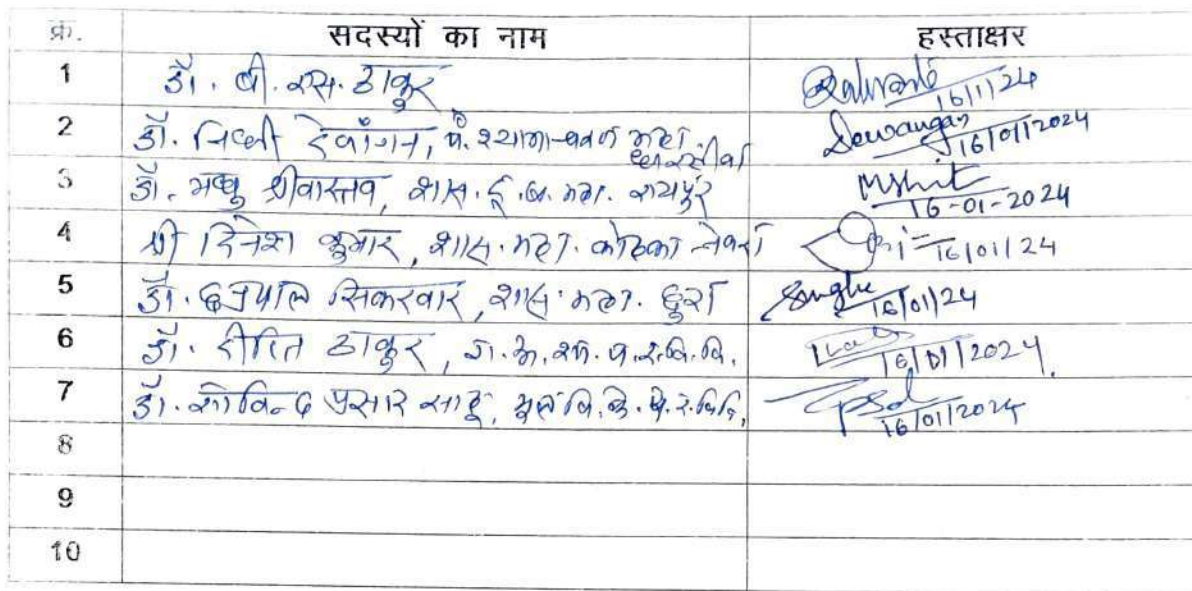 क्र. सदस्यों का नाम हस्ताक्षर
1 डॉ. बी. एस. ठाकुर 16/1/24
2 डॉ. देवांगन, पं. श्यामाचरण महा. धरसीवां Dewangan 16/01/2024
3 डॉ. मधु श्रीवास्तव, शास. दू. ब. महा. रायपुर 16-01-2024
4 श्री दिनेश कुमार, शास. महा. कोहका नेवरा 16/01/24
5 डॉ. छत्रपाल सिकरवार, शास. महा. छुरा 16/01/24
6 डॉ. ठाकुर, 16/01/2024
7 डॉ. गोविन्द प्रसाद साहू, 16/01/2024
8
9
10